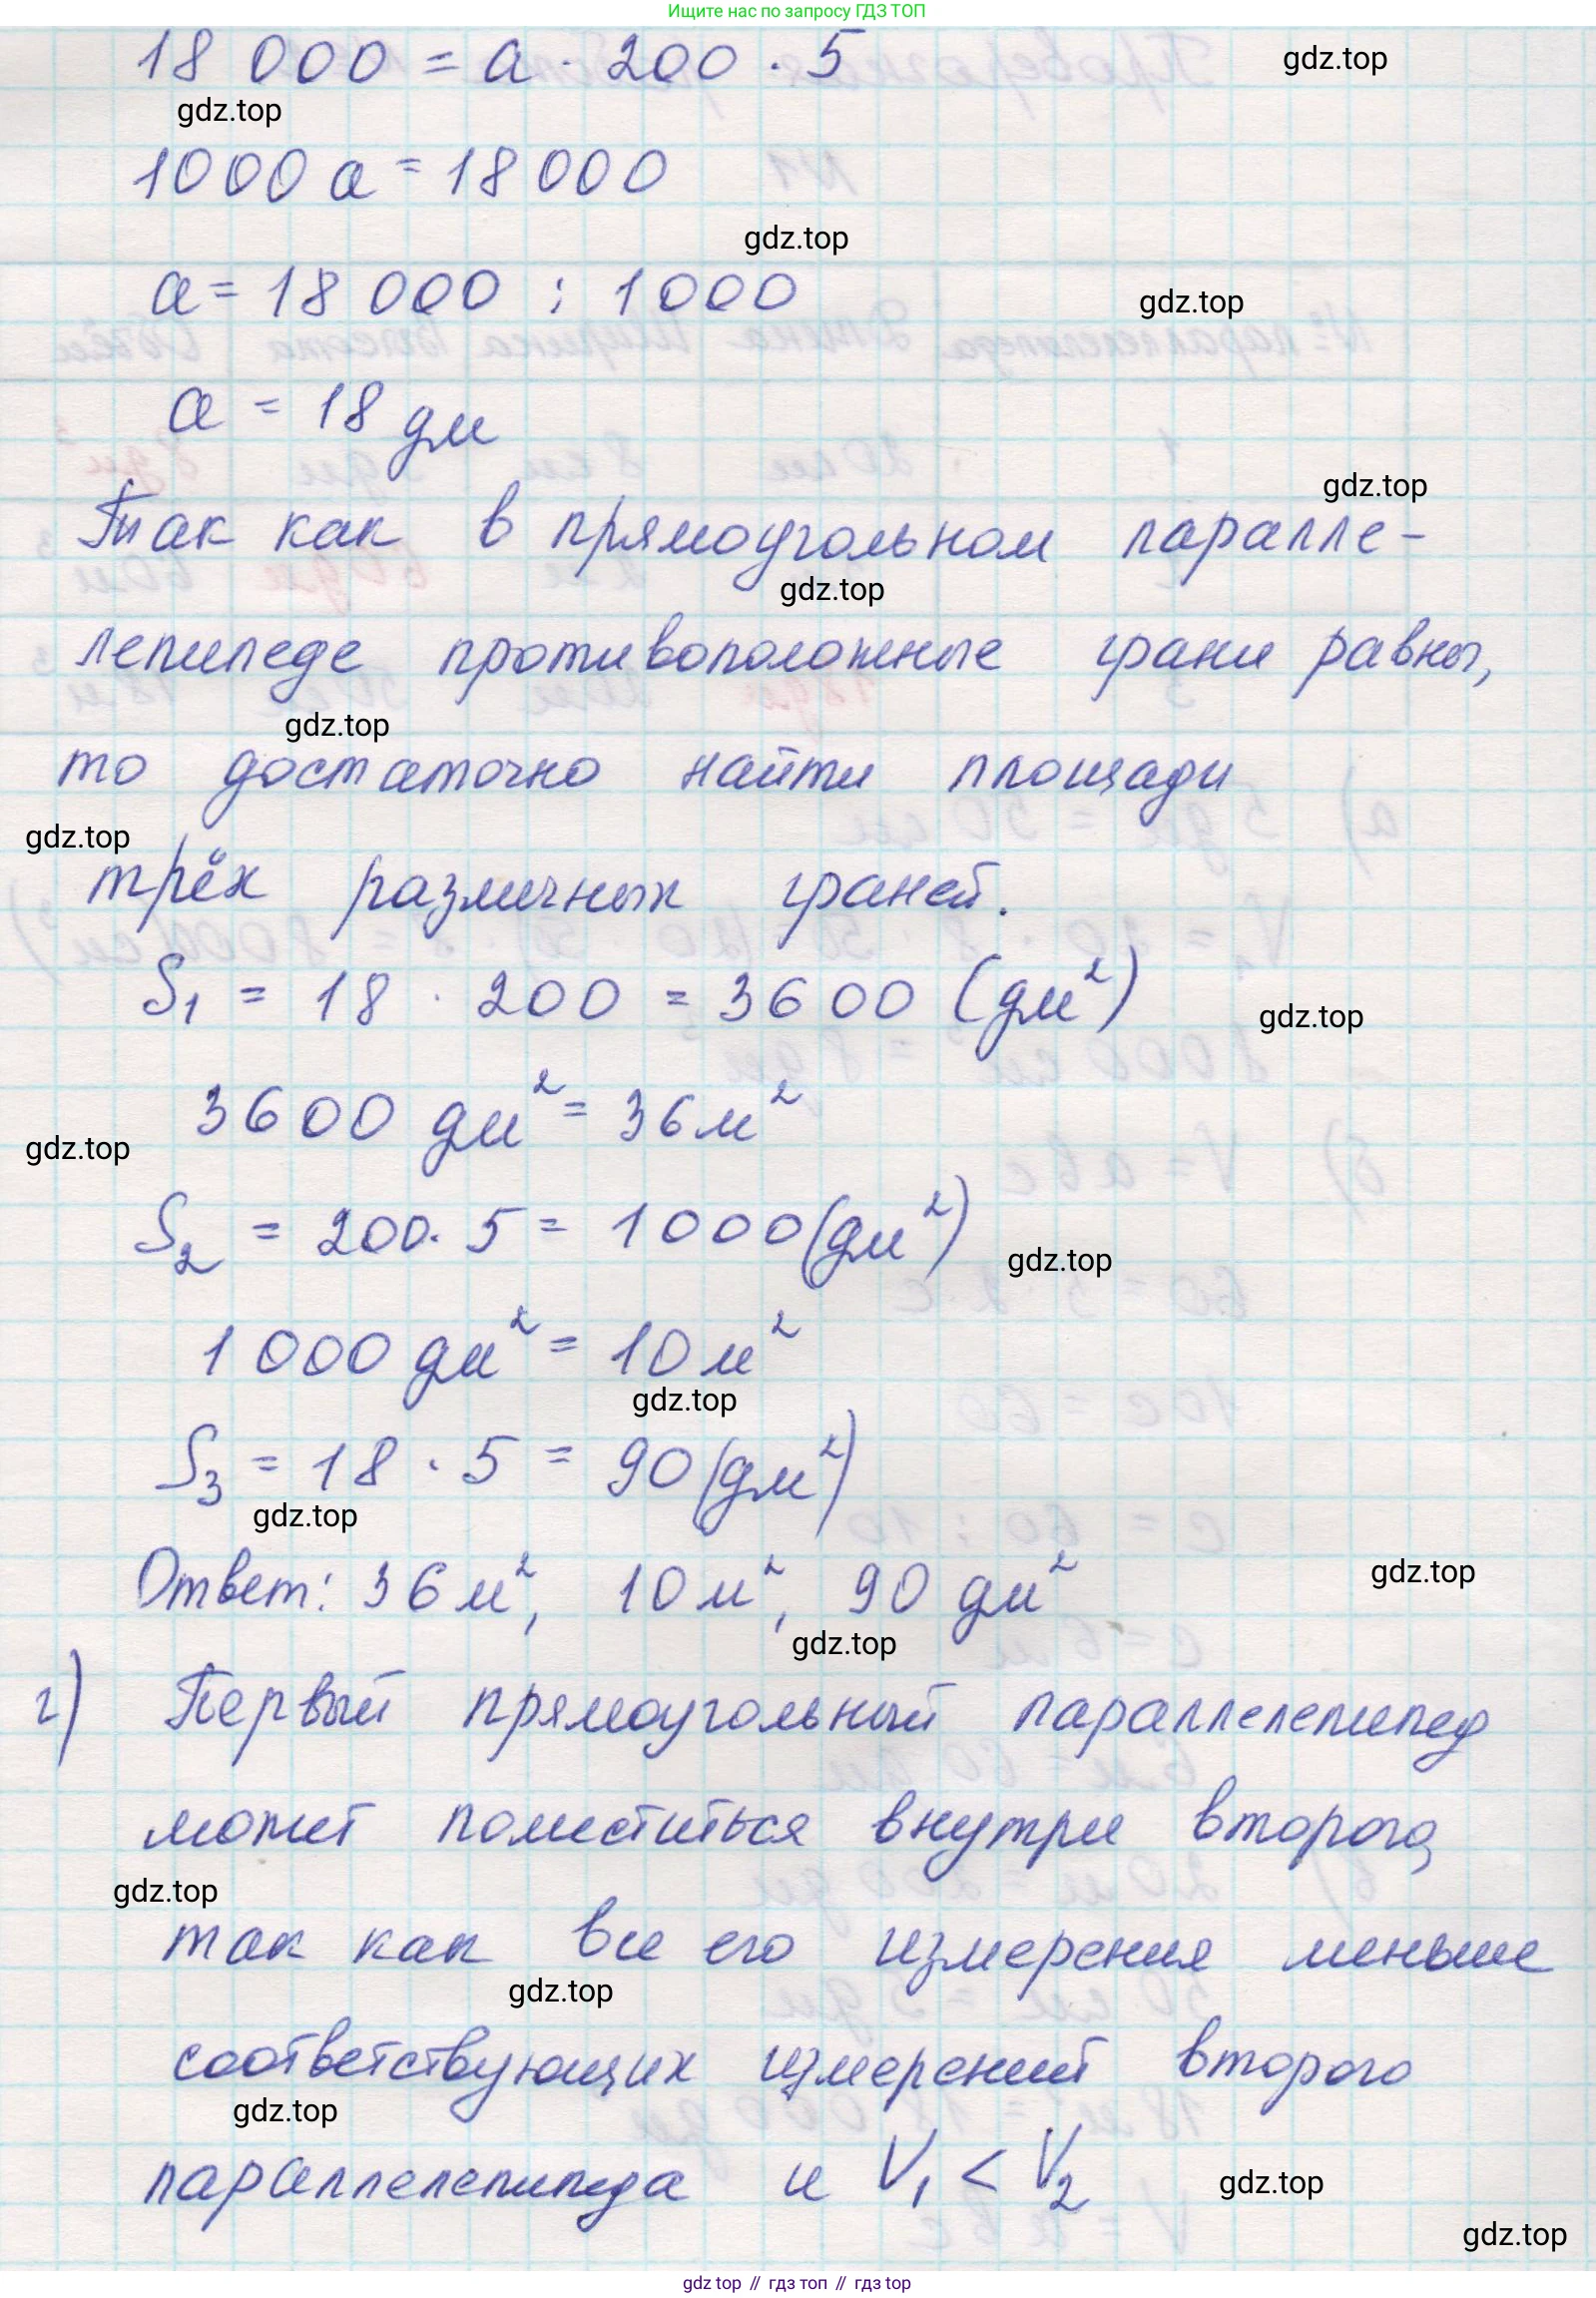 Ищите нас по запросу ГДЗ ТОП
18 000 = a · 200 · 5
gdz.top
gdz.top
1000 a = 18000
gdz.top
a = 18 000 : 1000
gdz.top
a = 18 дм
gdz.top
Так как в прямоугольном паралле-
gdz.top
лепипеде противоположные грани равны,
gdz.top
то достаточно найти площади
gdz.top
трёх различных граней.
S₁ = 18 · 200 = 3600 (дм²)
gdz.top
3600 дм² = 36 м²
gdz.top
S₂ = 200 · 5 = 1000 (дм²)
gdz.top
1000 дм² = 10 м²
gdz.top
S₃ = 18 · 5 = 90 (дм²)
gdz.top
Ответ: 36 м², 10 м², 90 дм²
gdz.top
gdz.top
г) Первый прямоугольный параллелепипед
может поместиться внутри второго,
gdz.top
так как все его измерения меньше
gdz.top
соответствующих измерений второго
gdz.top
параллелепипеда и V₁ < V₂
gdz.top
gdz.top
gdz top // гдз топ // гдз top